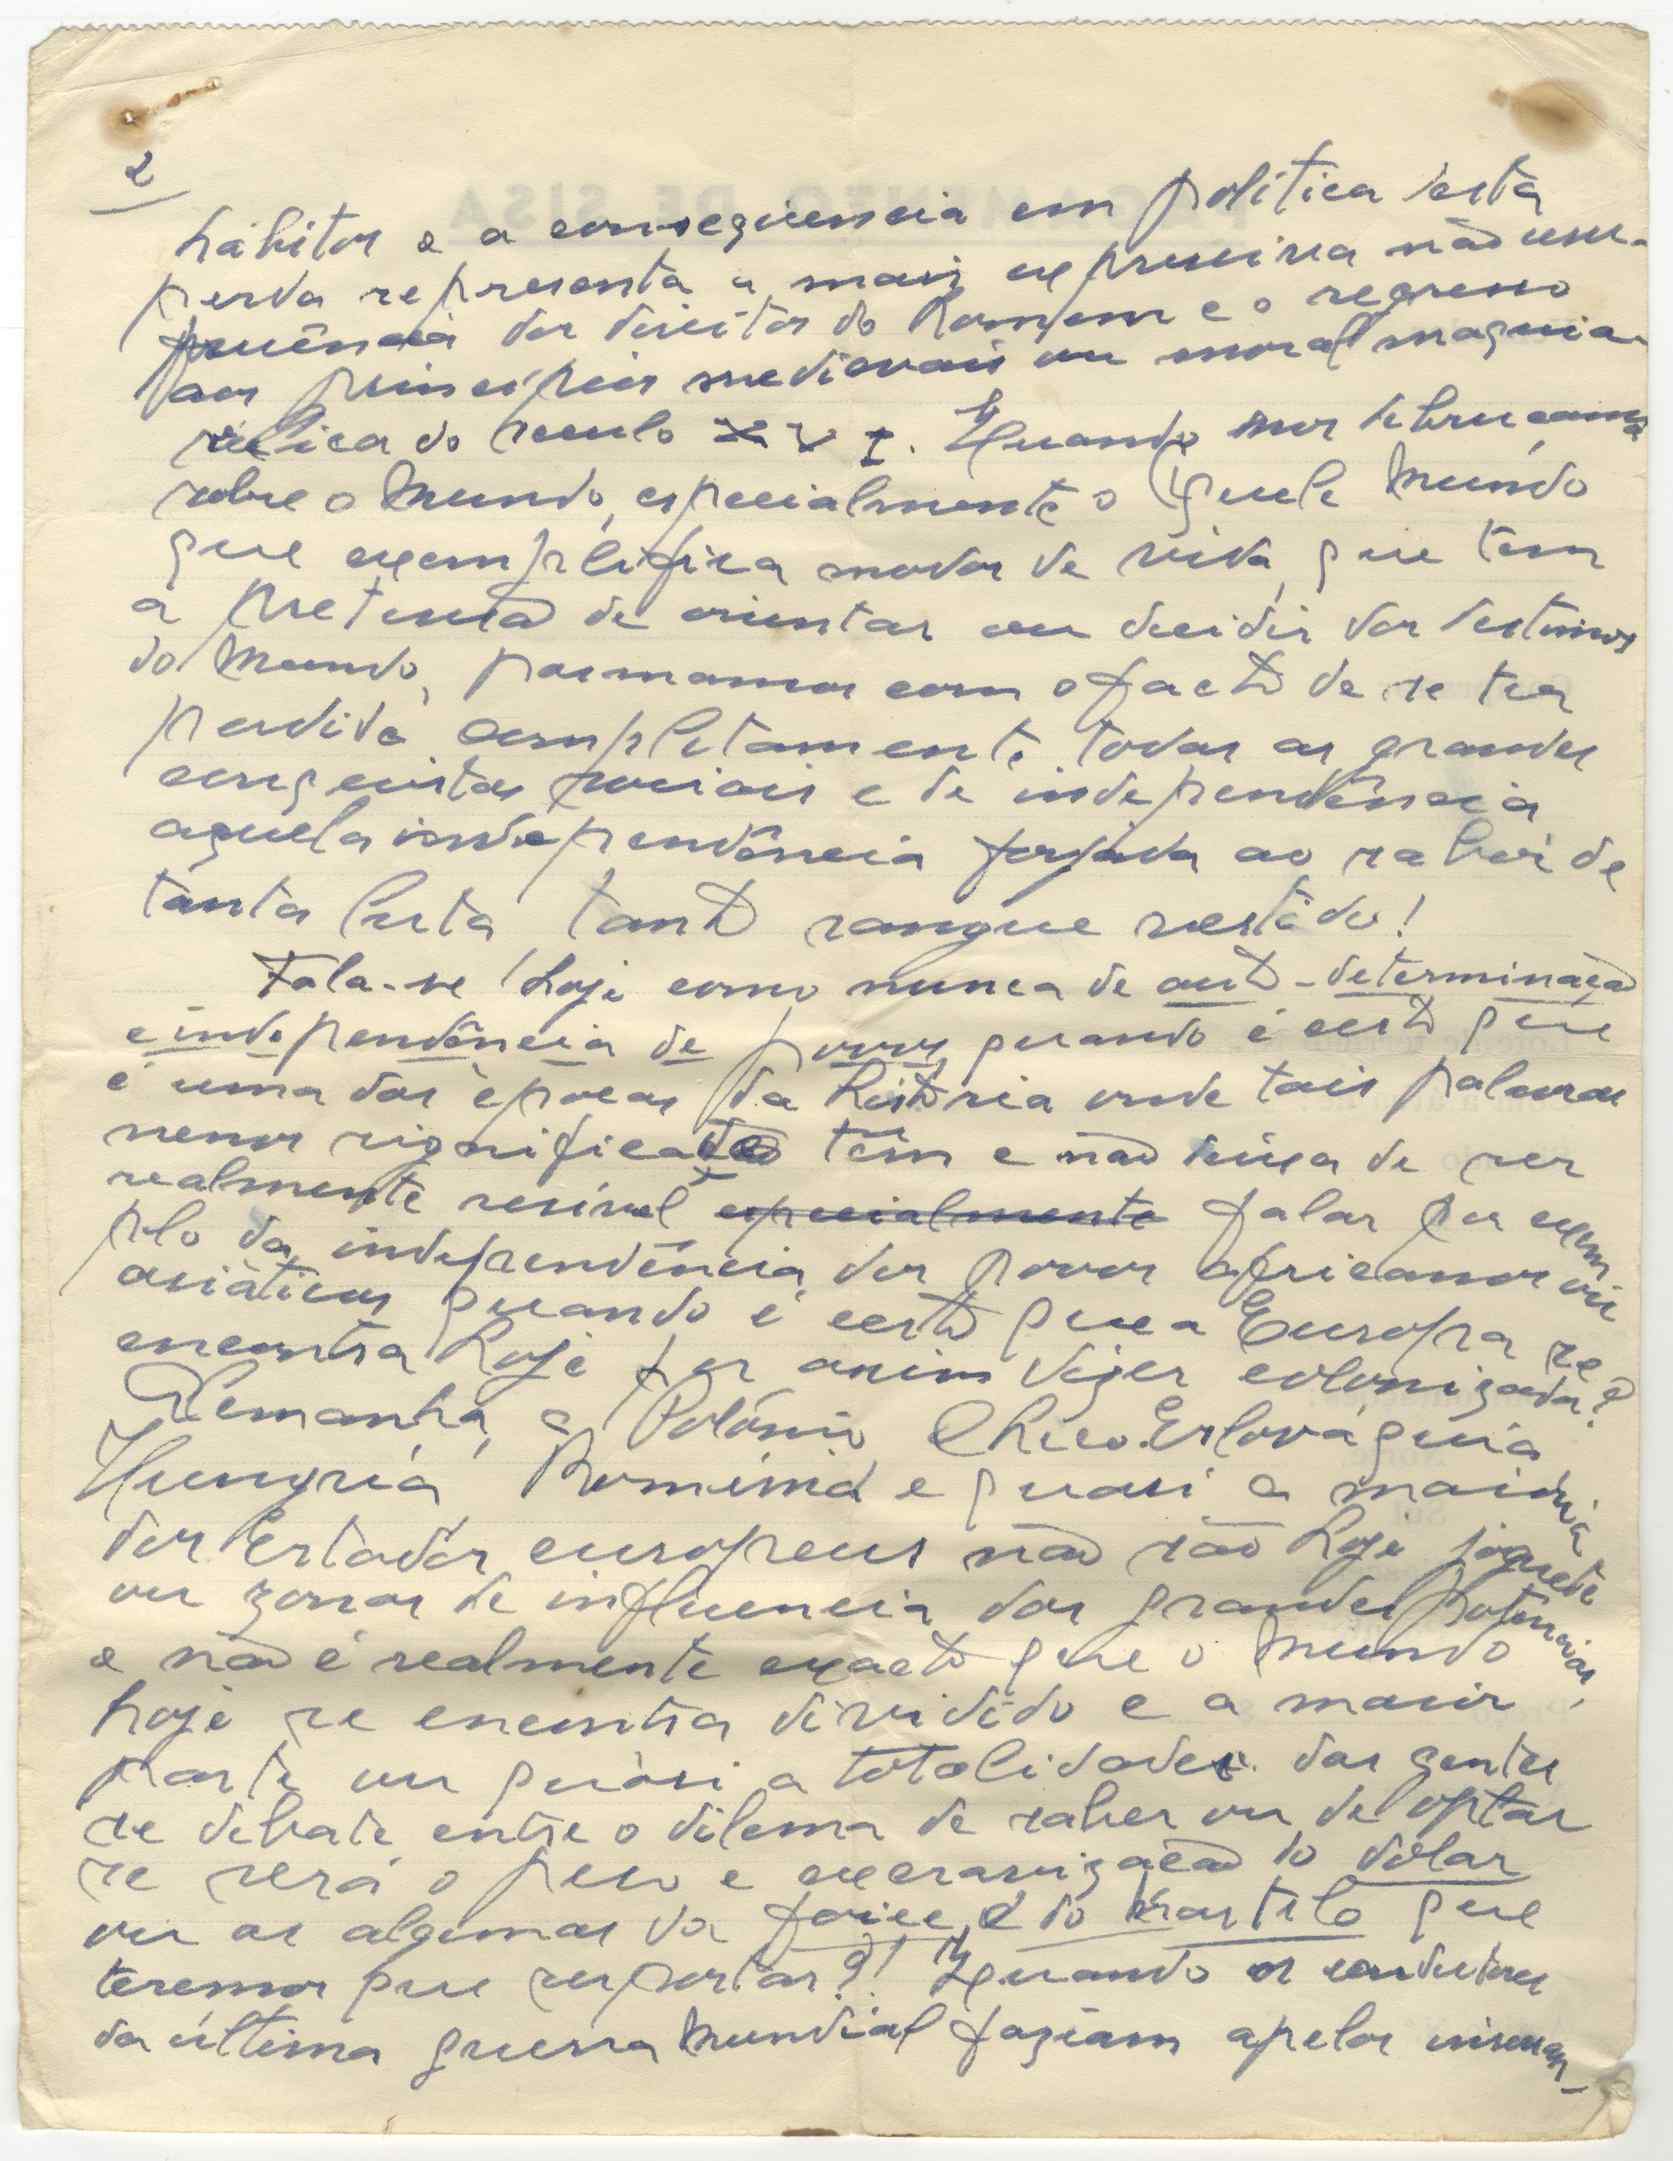 2
hábitos e a consequencia em política desta
perda representa a mais expressiva não usu-
fruência dos direitos do homem e o regresso
aos principios medievais ou moral maquia-
vélica do seculo XVI. Quando nos debruçamos
sobre o Mundo, especialmente aquele Mundo
que exemplifica modos de vida, que tem
a pretensão de orientar ou decidir dos destinos
do Mundo, pasmamos com o facto de se ter
perdido completamente todas as grandes
conquistas sociais e de independência
aquela independência forjada ao sabor de
tanta luta tanto sangue vertido!
Fala-se hoje como nunca de auto-determinação
e independência de povos, quando é certo que
é uma das épocas da história onde tais palavras
menos significado têm e não deixa de ser
realmente risível especialmente falar por exem
plo da independência dos povos africanos ou
asiáticos quando é certo que a Europa se
encontra hoje por assim dizer colonizada? a
Alemanha, a Polónia Checo-Eslováquia
Hungria, Roménia e quasi a maioria
dos Estados europeus não são hoje joguete
ou zonas de influencia das grandes potências,
e não é realmente exacto que o Mundo
hoje se encontra dividido e a maior
parte ou quási a totalidade das gentes
se debate entre o dilema de saber ou de optar
se será o peso e escravização do dólar
ou as algemas da foice e do martelo que
teremos que suportar?! Quando os condutores
da última guerra Mundial faziam apelos